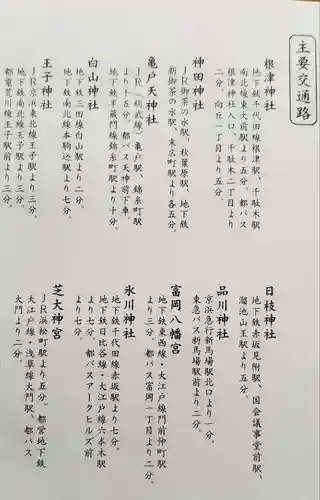 主要交通路
根津神社
地下鉄千代田線根津駅、千駄木駅
南北線東大前駅より五分。都バス
根津神社入口、千駄木二丁目より
二分、向丘一丁目より五分
神田神社
JR御茶の水駅、秋葉原駅、地下鉄
新御茶の水駅、末広町駅より各五分。
亀戸天神社
JR(総武線)亀戸駅、錦糸町駅
より十五分。都バス天神前下車。
地下鉄半蔵門線錦糸町駅より十分。
白山神社
地下鉄三田線白山駅より二分。
地下鉄南北線本駒込駅より七分。
王子神社
JR京浜東北線王子駅より三分。
地下鉄南北線王子駅より三分。
都電荒川線王子駅前より三分。
日枝神社
地下鉄赤坂見附駅、国会議事堂前駅、
溜池山王駅より五分。
品川神社
京浜急行新馬場駅北口より一分。
東急バス新馬場駅前より二分。
富岡八幡宮
地下鉄東西線・大江戸線門前仲町駅
より三分。都バス富岡一丁目より二分。
氷川神社
地下鉄千代田線赤坂駅より七分。
地下鉄日比谷線・大江戸線六本木駅
より七分。都バスアークヒルズ前
より七分。
芝大神宮
JR浜松町駅より五分。都営地下鉄
大江戸線・浅草線大門駅、都バス
大門より二分。